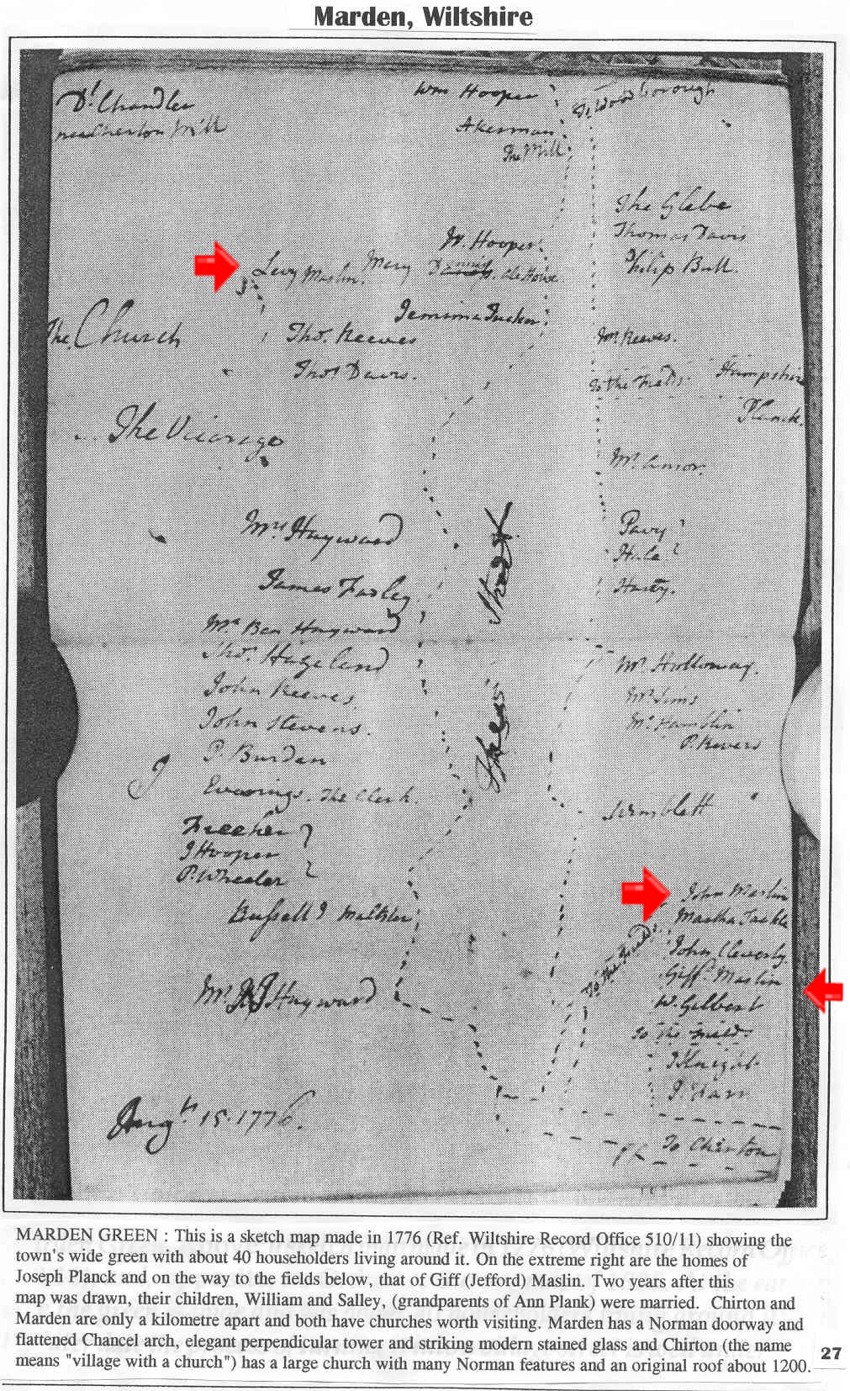 Marden, Wiltshire
Dr Chandler
near Cherton Mill
Wm Hooper
Akerman
The Mill
To Woodborough
The Glebe
Thomas Davis
Philip Bull.
W. Hooper.
Levy Maslin. Mary Dennis. Ale House
Jemima Tucker.
The Church
Thos. Reeves
Thos Davis.
Mr Reeves.
To the Fields. Hampshire
Planck.
The Vicarage
Mr Amor.
Mrs Hayward
Pavy
Harty.
James Farley
Mr Ben Hayward
Thos. Hazeland
John Reeves
John Stevens.
P. Burdan
Evverings. The Clerk.
Street
Mr Holloway.
Mr Sims
Mr Hamblin
P. Rivers
J Hooper
P. Wheeler
Mr Hayward
John Maslin
Martha Tuckle
John Cleverly.
Giff. Maslin
W. Gilbert
To the Field
To the Field.
J Knight
Augst 15. 1776.
To Chirton
MARDEN GREEN : This is a sketch map made in 1776 (Ref. Wiltshire Record Office 510/11) showing the
town's wide green with about 40 householders living around it. On the extreme right are the homes of
Joseph Planck and on the way to the fields below, that of Giff (Jefford) Maslin. Two years after this
map was drawn, their children, William and Salley, (grandparents of Ann Plank) were married. Chirton and
Marden are only a kilometre apart and both have churches worth visiting. Marden has a Norman doorway and
flattened Chancel arch, elegant perpendicular tower and striking modern stained glass and Chirton (the name
means "village with a church") has a large church with many Norman features and an original roof about 1200.
27